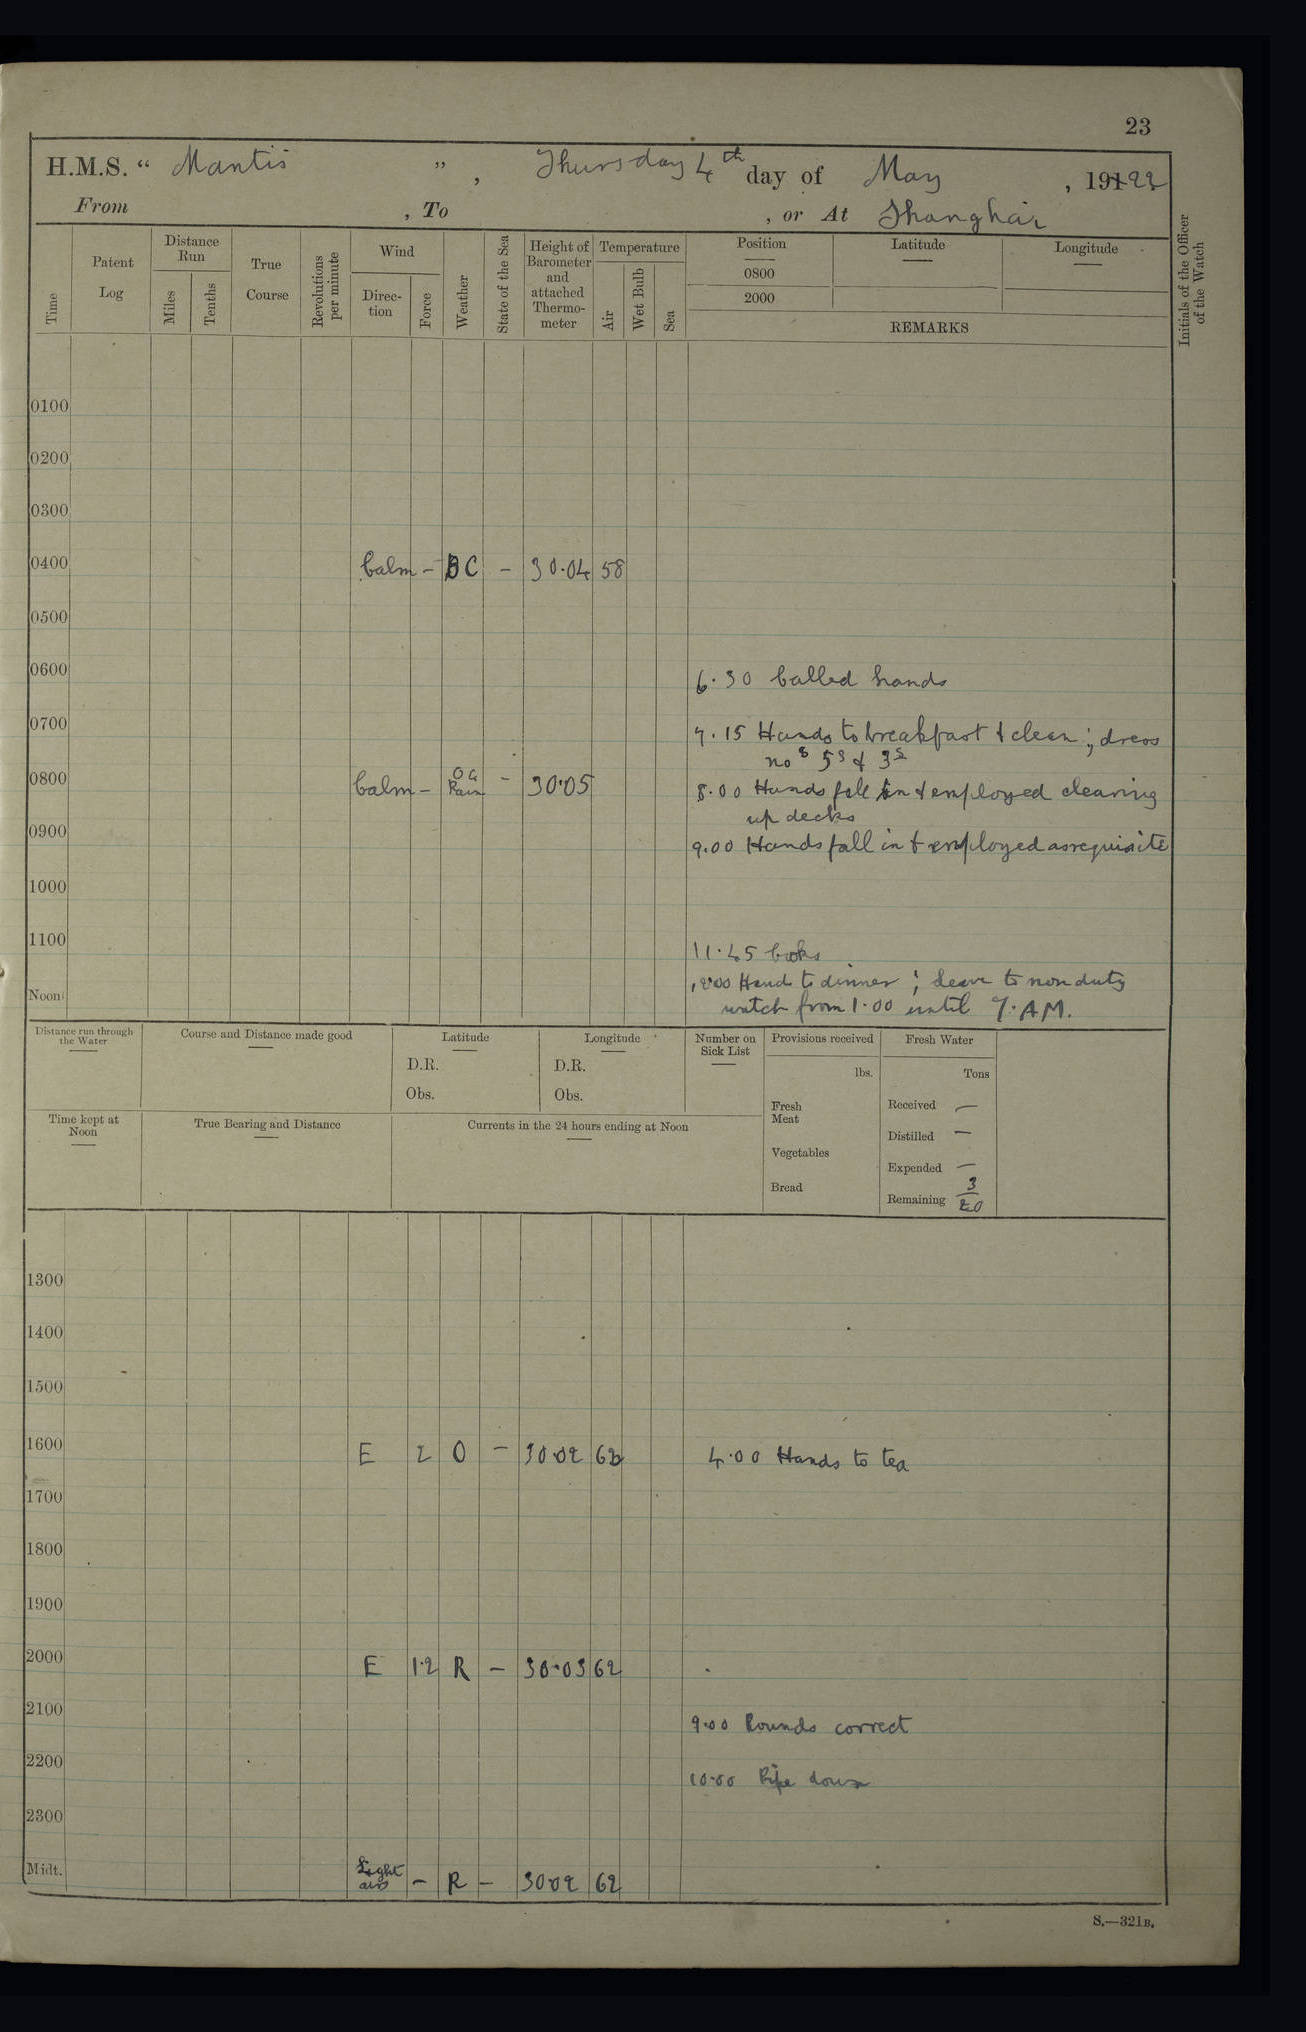 23
H.M.S. “ Mantis ” , Thursday 4th day of May , 191 22
From , To , or At Shanghai
Time
Patent Log
Distance Run
Miles
Tenths
True Course
Revolutions per minute
Wind
Direc- tion
Force
Weather
State of the Sea
Height of Barometer and attached Thermo- meter
Temperature
Air
Wet Bulb
Sea
Position
Latitude
Longitude
0800
2000
REMARKS
Initials of the Officer of the Watch
0100
0200
0300
0400 Calm – BC – 30.04 58
0500
0600
6.30 Called hands
0700
7.15 Hands to breakfast & clean ; dress
nos 5s & 3s
0800 Calm – OG Rain – 30.05
8.00 Hands fall in & employed clearing
up decks
0900
9.00 Hands fall in & employed as requisite
1000
1100
11.45 Cooks
Noon
12.00 Hands to dinner ; Leave to non duty
watch from 1.00 until 7. AM.
Distance run through the Water
Course and Distance made good
Latitude
D.R.
Obs.
Longitude
D.R.
Obs.
Number on Sick List
Provisions received
lbs.
Fresh Meat
Vegetables
Bread
Fresh Water
Tons
Received –
Distilled –
Expended –
Remaining 3/20
Time kept at Noon
True Bearing and Distance
Currents in the 24 hours ending at Noon
1300
1400
1500
1600 E 2 O – 30.02 62 4.00 Hands to tea
1700
1800
1900
2000 E 1.2 R – 30.03 62
2100
9.00 Rounds correct
2200
10.00 Pipe down
2300
Midt. Light airs – R – 30.02 62
S.—321B.